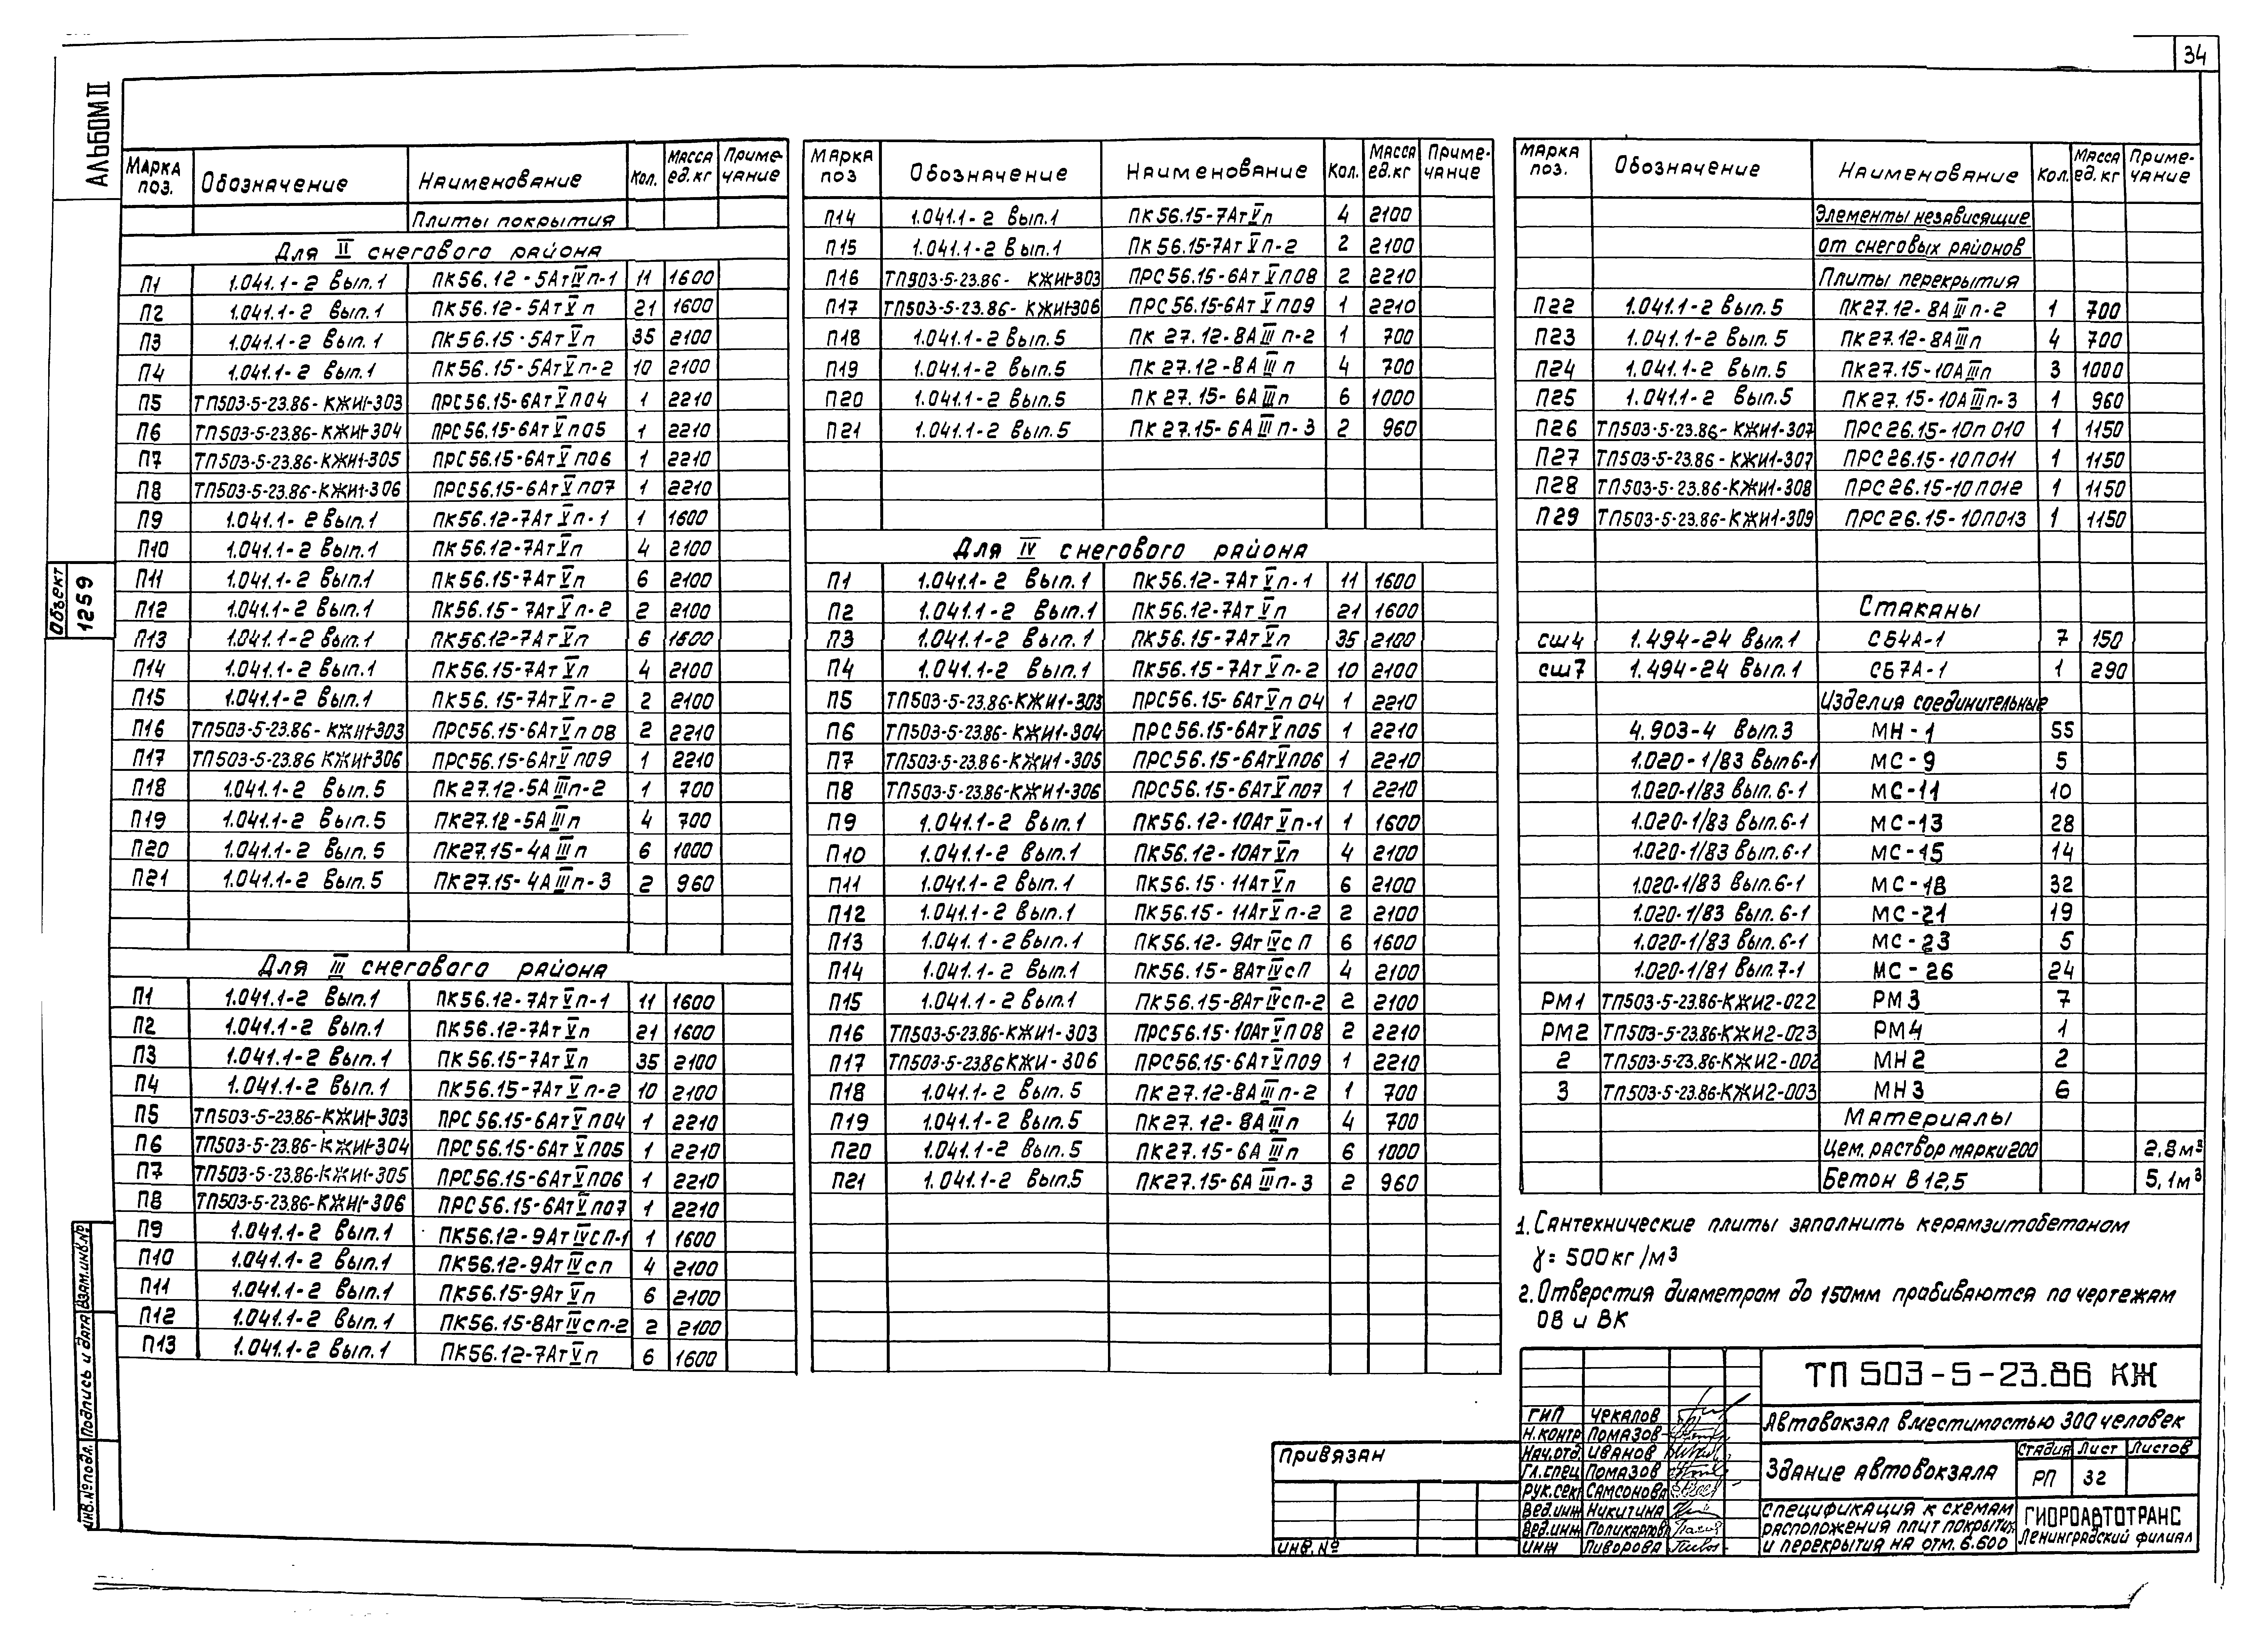 34
АЛЬБОМ II
Объект 1259
Марка поз. Обозначение Наименование Кол. Масса ед.кг Примечание
Плиты покрытия
Для II снегового района
П1 1.041.1-2 Вып.1 ПК56.12-5АтIVп-1 11 1600
П2 1.041.1-2 Вып.1 ПК56.12-5АтVп 21 1600
П3 1.041.1-2 Вып.1 ПК56.15-5АтVп 35 2100
П4 1.041.1-2 Вып.1 ПК56.15-5АтVп-2 10 2100
П5 ТП503-5-23.86-КЖИ1-303 ПРС56.15-6АтVп04 1 2210
П6 ТП503-5-23.86-КЖИ1-304 ПРС56.15-6АтVп05 1 2210
П7 ТП503-5-23.86-КЖИ1-305 ПРС56.15-6АтVп06 1 2210
П8 ТП503-5-23.86-КЖИ1-306 ПРС56.15-6АтVп07 1 2210
П9 1.041.1-2 Вып.1 ПК56.12-7АтVп-1 1 1600
П10 1.041.1-2 Вып.1 ПК56.12-7АтVп 4 2100
П11 1.041.1-2 Вып.1 ПК56.15-7АтVп 6 2100
П12 1.041.1-2 Вып.1 ПК56.15-7АтVп-2 2 2100
П13 1.041.1-2 Вып.1 ПК56.12-7АтVп 6 1600
П14 1.041.1-2 Вып.1 ПК56.15-7АтVп 4 2100
П15 1.041.1-2 Вып.1 ПК56.15-7АтVп-2 2 2100
П16 ТП503-5-23.86-КЖИ1-303 ПРС56.15-6АтVп08 2 2210
П17 ТП503-5-23.86 КЖИ1-306 ПРС56.15-6АтVп09 1 2210
П18 1.041.1-2 Вып.5 ПК27.12-5АIIIп-2 1 700
П19 1.041.1-2 Вып.5 ПК27.12-5АIIIп 4 700
П20 1.041.1-2 Вып.5 ПК27.15-4АIIIп 6 1000
П21 1.041.1-2 Вып.5 ПК27.15-4АIIIп-3 2 960
Для III снегового района
П1 1.041.1-2 Вып.1 ПК56.12-7АтVп-1 11 1600
П2 1.041.1-2 Вып.1 ПК56.12-7АтVп 21 1600
П3 1.041.1-2 Вып.1 ПК56.15-7АтVп 35 2100
П4 1.041.1-2 Вып.1 ПК56.15-7АтVп-2 10 2100
П5 ТП503-5-23.86-КЖИ1-303 ПРС56.15-6АтVп04 1 2210
П6 ТП503-5-23.86-КЖИ1-304 ПРС56.15-6АтVп05 1 2210
П7 ТП503-5-23.86-КЖИ1-305 ПРС56.15-6АтVп06 1 2210
П8 ТП503-5-23.86-КЖИ1-306 ПРС56.15-6АтVп07 1 2210
П9 1.041.1-2 Вып.1 ПК56.12-9АтIVсп-1 1 1600
П10 1.041.1-2 Вып.1 ПК56.12-9АтIVсп 4 2100
П11 1.041.1-2 Вып.1 ПК56.15-9АтVп 6 2100
П12 1.041.1-2 Вып.1 ПК56.15-8АтIVсп-2 2 2100
П13 1.041.1-2 Вып.1 ПК56.12-7АтVп 6 1600
Марка поз Обозначение Наименование Кол. Масса ед.кг Примечание
П14 1.041.1-2 Вып.1 ПК56.15-7АтVп 4 2100
П15 1.041.1-2 Вып.1 ПК56.15-7АтVп-2 2 2100
П16 ТП503-5-23.86-КЖИ1-303 ПРС56.15-6АтVп08 2 2210
П17 ТП503-5-23.86-КЖИ1-306 ПРС56.15-6АтVп09 1 2210
П18 1.041.1-2 Вып.5 ПК27.12-8АIIIп-2 1 700
П19 1.041.1-2 Вып.5 ПК27.12-8АIIIп 4 700
П20 1.041.1-2 Вып.5 ПК27.15-6АIIIп 6 1000
П21 1.041.1-2 Вып.5 ПК27.15-6АIIIп-3 2 960
Для IV снегового района
П1 1.041.1-2 Вып.1 ПК56.12-7АтVп-1 11 1600
П2 1.041.1-2 Вып.1 ПК56.12-7АтVп 21 1600
П3 1.041.1-2 Вып.1 ПК56.15-7АтVп 35 2100
П4 1.041.1-2 Вып.1 ПК56.15-7АтVп-2 10 2100
П5 ТП503-5-23.86-КЖИ1-303 ПРС56.15-6АтVп04 1 2210
П6 ТП503-5-23.86-КЖИ1-304 ПРС56.15-6АтVп05 1 2210
П7 ТП503-5-23.86-КЖИ1-305 ПРС56.15-6АтVп06 1 2210
П8 ТП503-5-23.86-КЖИ1-306 ПРС56.15-6АтVп07 1 2210
П9 1.041.1-2 Вып.1 ПК56.12-10АтVп-1 1 1600
П10 1.041.1-2 Вып.1 ПК56.12-10АтVп 4 2100
П11 1.041.1-2 Вып.1 ПК56.15-11АтVп 6 2100
П12 1.041.1-2 Вып.1 ПК56.15-11АтVп-2 2 2100
П13 1.041.1-2 Вып.1 ПК56.12-9АтIVсп 6 1600
П14 1.041.1-2 Вып.1 ПК56.15-8АтIVсп 4 2100
П15 1.041.1-2 Вып.1 ПК56.15-8АтIVсп-2 2 2100
П16 ТП503-5-23.86-КЖИ1-303 ПРС56.15-10АтVп08 2 2210
П17 ТП503-5-23.86КЖИ-306 ПРС56.15-6АтVп09 1 2210
П18 1.041.1-2 Вып.5 ПК27.12-8АIIIп-2 1 700
П19 1.041.1-2 Вып.5 ПК27.12-8АIIIп 4 700
П20 1.041.1-2 Вып.5 ПК27.15-6АIIIп 6 1000
П21 1.041.1-2 Вып.5 ПК27.15-6АIIIп-3 2 960
Марка поз. Обозначение Наименование Кол. Масса ед.кг Примечание
Элементы независящие
от снеговых районов
Плиты перекрытия
П22 1.041.1-2 Вып.5 ПК27.12-8АIIIп-2 1 700
П23 1.041.1-2 Вып.5 ПК27.12-8АIIIп 4 700
П24 1.041.1-2 Вып.5 ПК27.15-10АIIIп 3 1000
П25 1.041.1-2 Вып.5 ПК27.15-10АIIIп-3 1 960
П26 ТП503-5-23.86-КЖИ1-307 ПРС26.15-10п010 1 1150
П27 ТП503-5-23.86-КЖИ1-307 ПРС26.15-10П011 1 1150
П28 ТП503-5-23.86-КЖИ1-308 ПРС26.15-10П012 1 1150
П29 ТП503-5-23.86-КЖИ1-309 ПРС26.15-10П013 1 1150
Стаканы
сш4 1.494-24 Вып.1 СБ4А-1 7 150
сш7 1.494-24 Вып.1 СБ7А-1 1 290
Изделия соединительные
4.903-4 Вып.3 МН-1 55
1.020-1/83 Вып6-1 МС-9 5
1.020-1/83 Вып.6-1 МС-11 10
1.020-1/83 Вып.6-1 МС-13 28
1.020-1/83 Вып.6-1 МС-15 14
1.020-1/83 Вып.6-1 МС-18 32
1.020-1/83 Вып.6-1 МС-21 19
1.020-1/83 Вып.6-1 МС-23 5
1.020-1/81 Вып.7-1 МС-26 24
РМ1 ТП503-5-23.86-КЖИ2-022 РМ3 7
РМ2 ТП503-5-23.86-КЖИ2-023 РМ4 1
2 ТП503-5-23.86-КЖИ2-002 МН2 2
3 ТП503-5-23.86-КЖИ2-003 МН3 6
Материалы
Цем. раствор марки 200 2,8м³
Бетон В12,5 5,1м³
1. Сантехнические плиты заполнить керамзитобетоном
γ=500кг/м³
2. Отверстия диаметром до 150мм пробиваются по чертежам
ОВ и ВК
ТП 503-5-23.86 КЖ
Автовокзал вместимостью 300 человек
Здание автовокзала
Стадия Лист Листов
РП 32
Спецификация к схемам
расположения плит покрытия
и перекрытия на отм. 6.600
ГИПРОАВТОТРАНС
Ленинградский филиал
ГИП Чекалов
Н.контр Помазов
Нач.отд. Иванов
Гл.спец Помазов
Рук.сек Самсонова
Вед.инж Никитина
Вед.инж Поликарпова
Инж Пиворова
Привязан
Инв.№
Инв.№подл. Подпись и дата Взам.инв.№